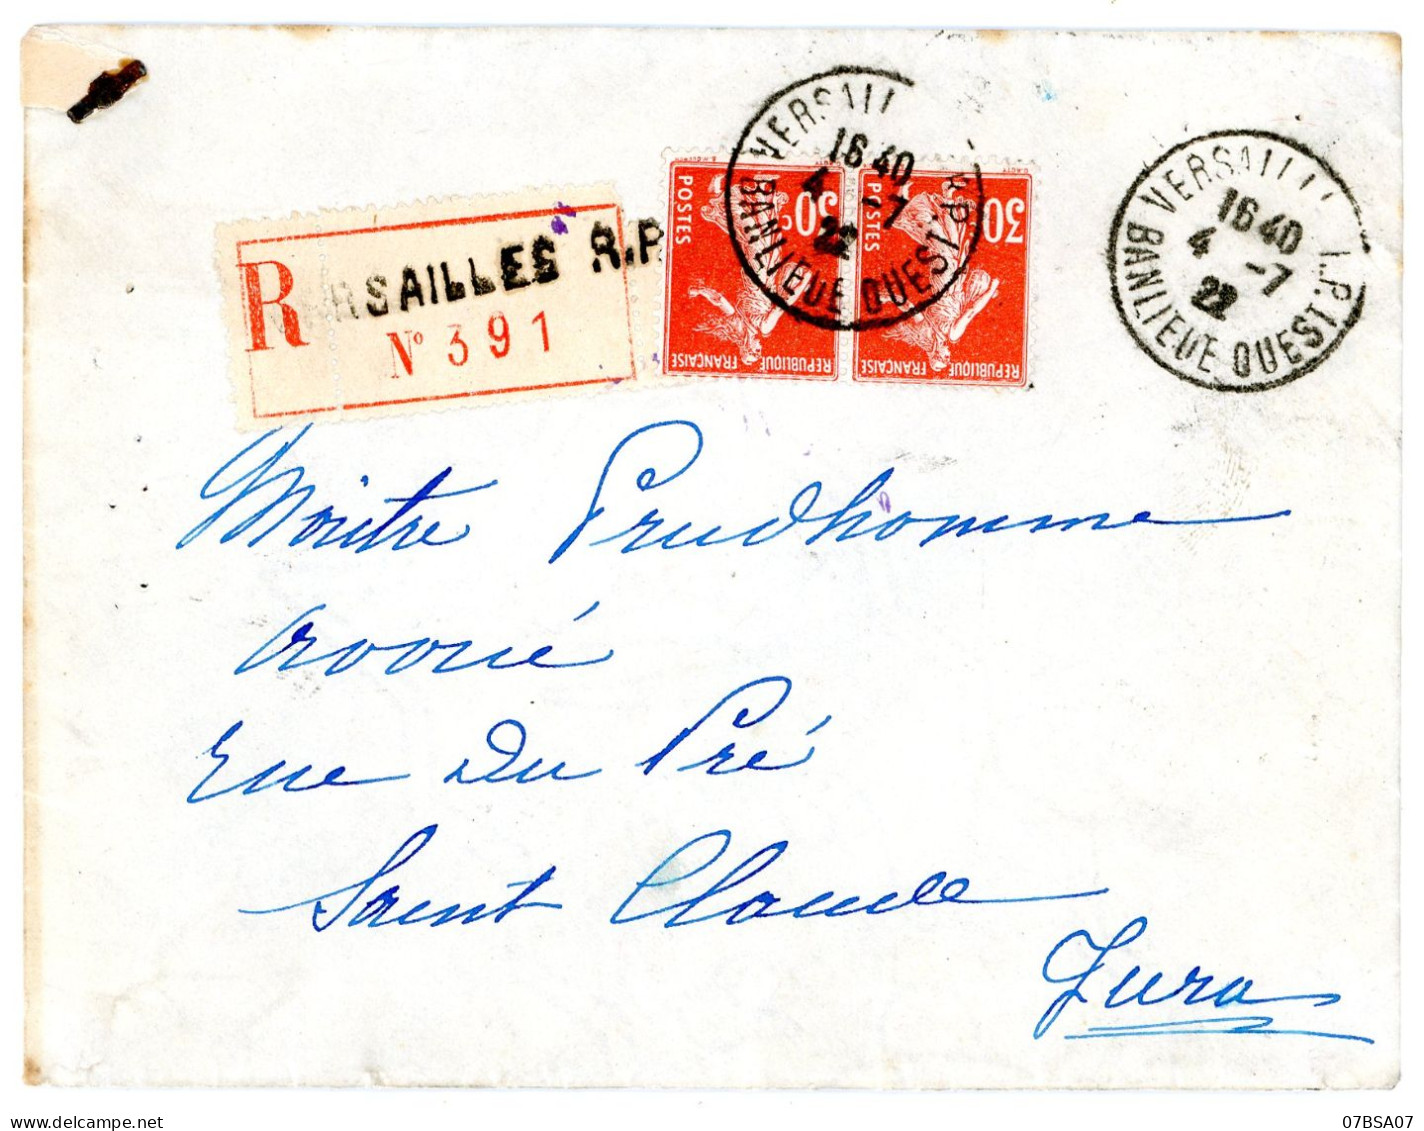 VERSAILL R.P.
16 40
4 -7
22
BANLIEUE OUEST
VERSAILL R.P.
16 40
4 -7
22
BANLIEUE OUEST
POSTES
30c
REPUBLIQUE FRANÇAISE
POSTES
30
REPUBLIQUE FRANÇAISE
R
VERSAILLES R.P.
N° 391
Maître Prudhomme
avoué
Rue Du Pré
Saint Claude
Jura
07BSA07